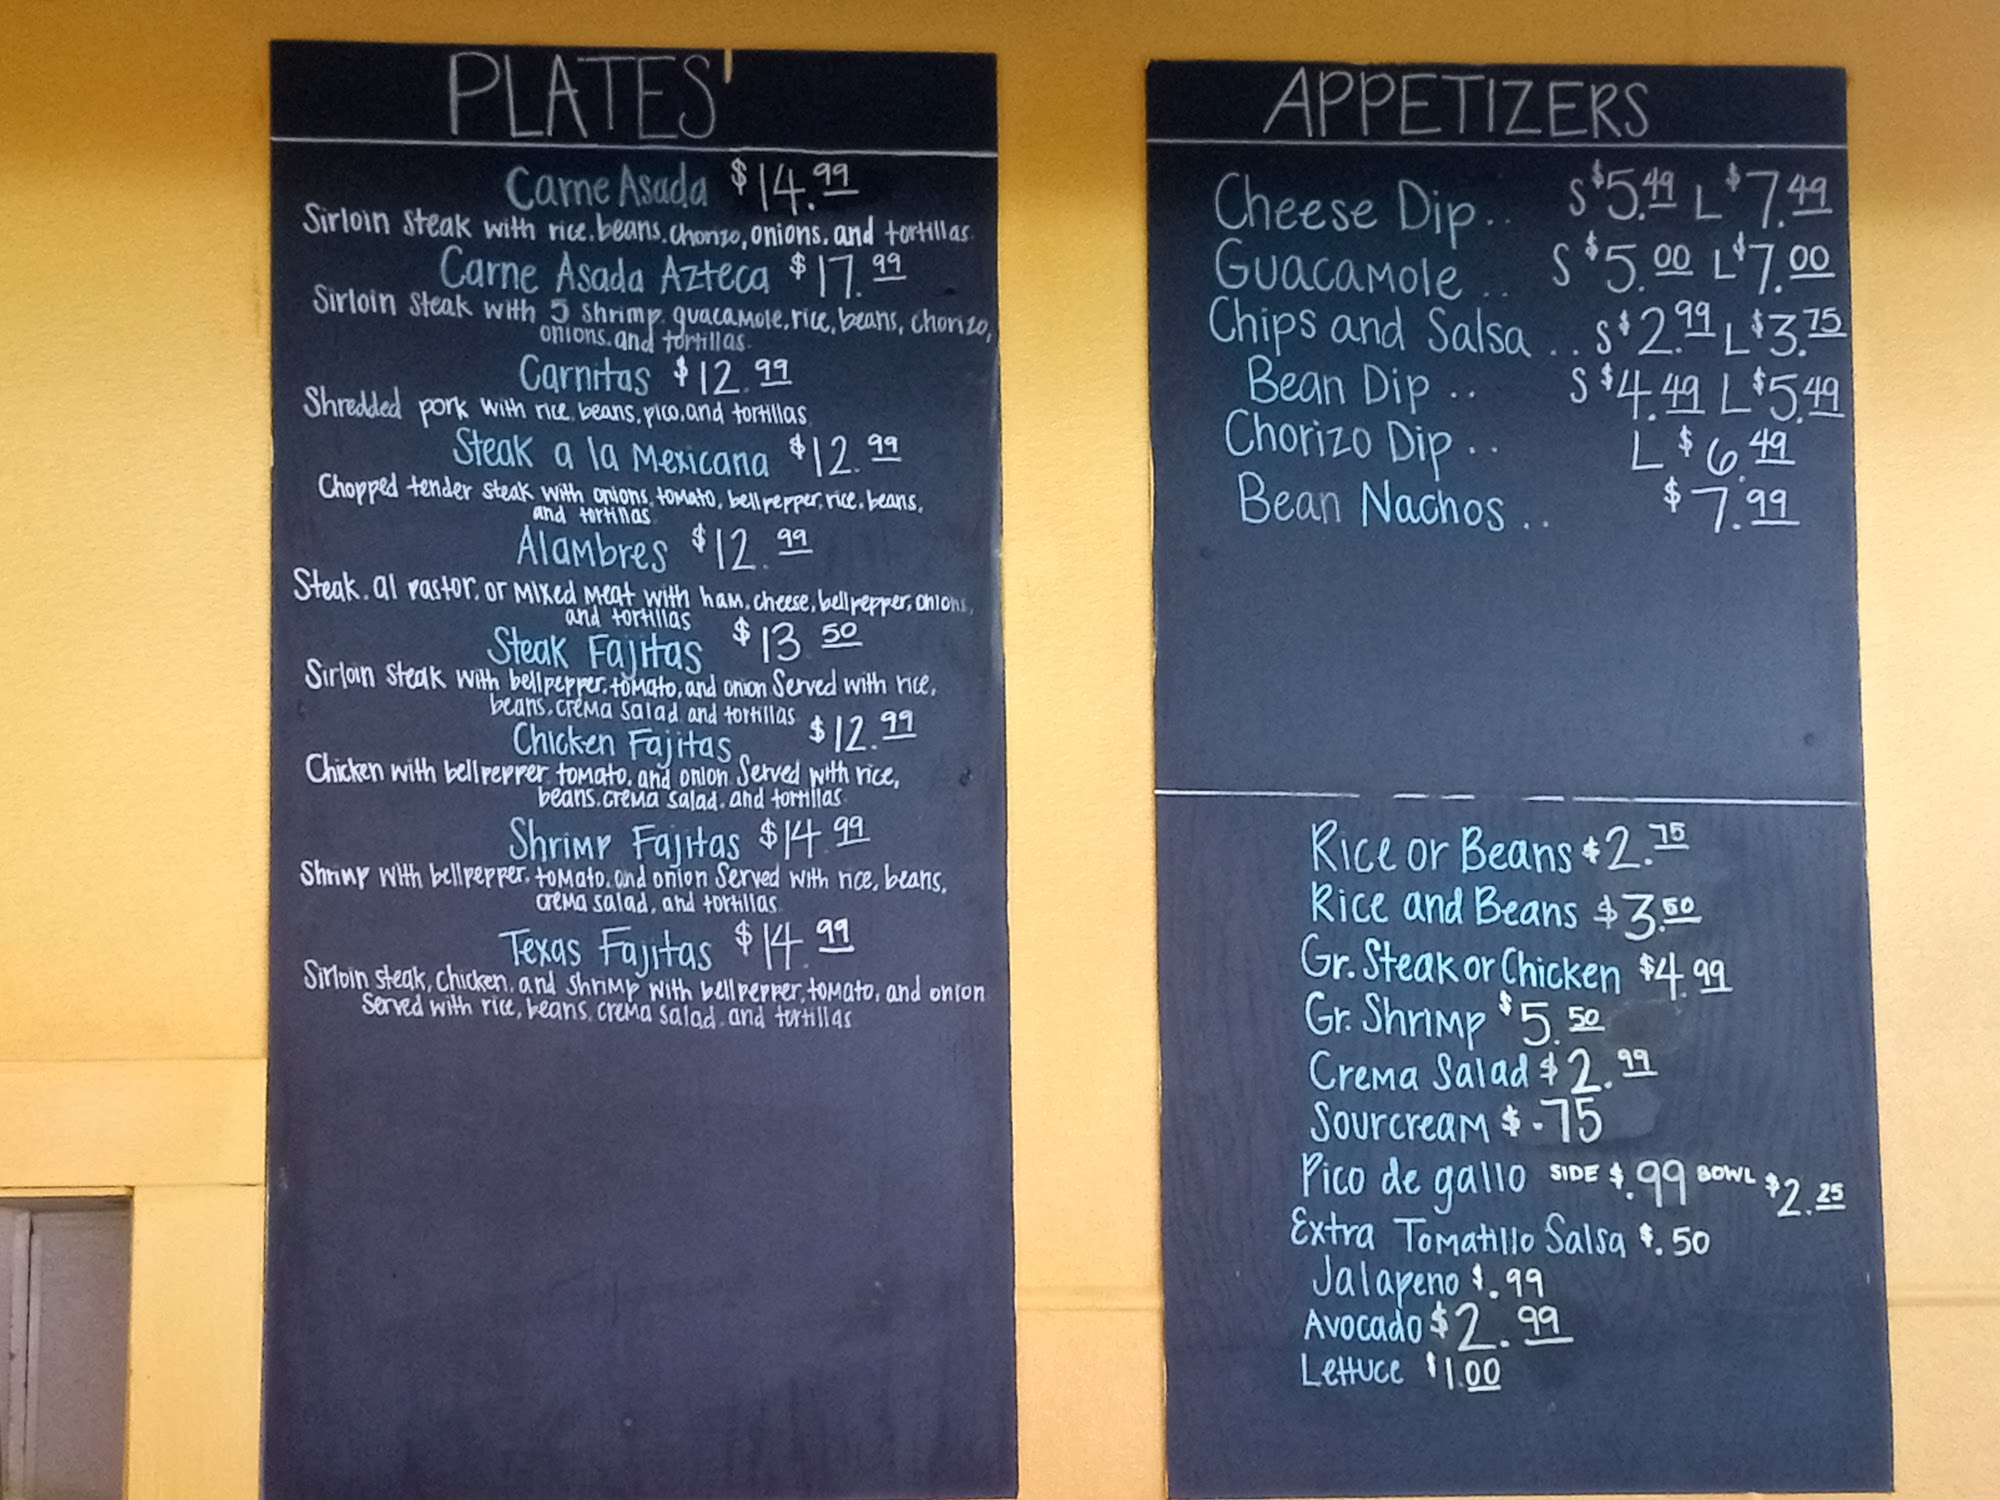 PLATES
Carne Asada $14.99
Sirloin steak with rice, beans, chorizo, onions, and tortillas
Carne Asada Azteca $17.99
Sirloin steak with 5 shrimp, guacamole, rice, beans, chorizo,
onions, and tortillas
Carnitas $12.99
Shredded pork with rice, beans, pico, and tortillas
Steak a la Mexicana $12.99
Chopped tender steak with onions, tomato, bellpepper, rice, beans,
and tortillas
Alambres $12.99
Steak, al pastor, or mixed meat with ham, cheese, bellpepper, onions,
and tortillas
Steak Fajitas $13.50
Sirloin steak with bellpepper, tomato, and onion Served with rice,
beans, crema salad and tortillas
Chicken Fajitas $12.99
Chicken with bellpepper tomato, and onion Served with rice,
beans, crema salad, and tortillas
Shrimp Fajitas $14.99
Shrimp with bellpepper, tomato, and onion Served with rice, beans,
crema salad, and tortillas
Texas Fajitas $14.99
Sirloin steak, chicken, and shrimp with bellpepper, tomato, and onion
Served with rice, beans, crema salad, and tortillas
APPETIZERS
Cheese Dip.. S $5.49 L $7.49
Guacamole .. S $5.00 L $7.00
Chips and Salsa .. S $2.99 L $3.75
Bean Dip .. S $4.49 L $5.49
Chorizo Dip .. L $6.49
Bean Nachos .. $7.99
Rice or Beans $2.75
Rice and Beans $3.50
Gr. Steak or Chicken $4.99
Gr. Shrimp $5.50
Crema Salad $2.99
Sourcream $.75
Pico de gallo SIDE $.99 BOWL $2.25
Extra Tomatillo Salsa $.50
Jalapeno $.99
Avocado $2.99
Lettuce $1.00